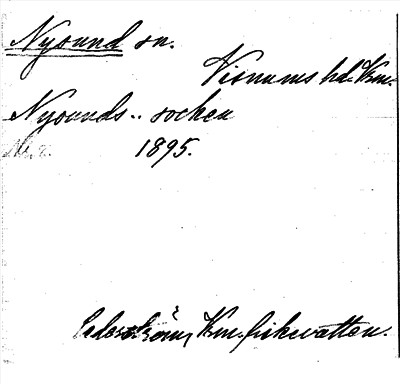 Nysund sn.
Visnums hd. Vrm.
Nysunds.. socken
1895.
Cederström, Vrm. fiskevatten.